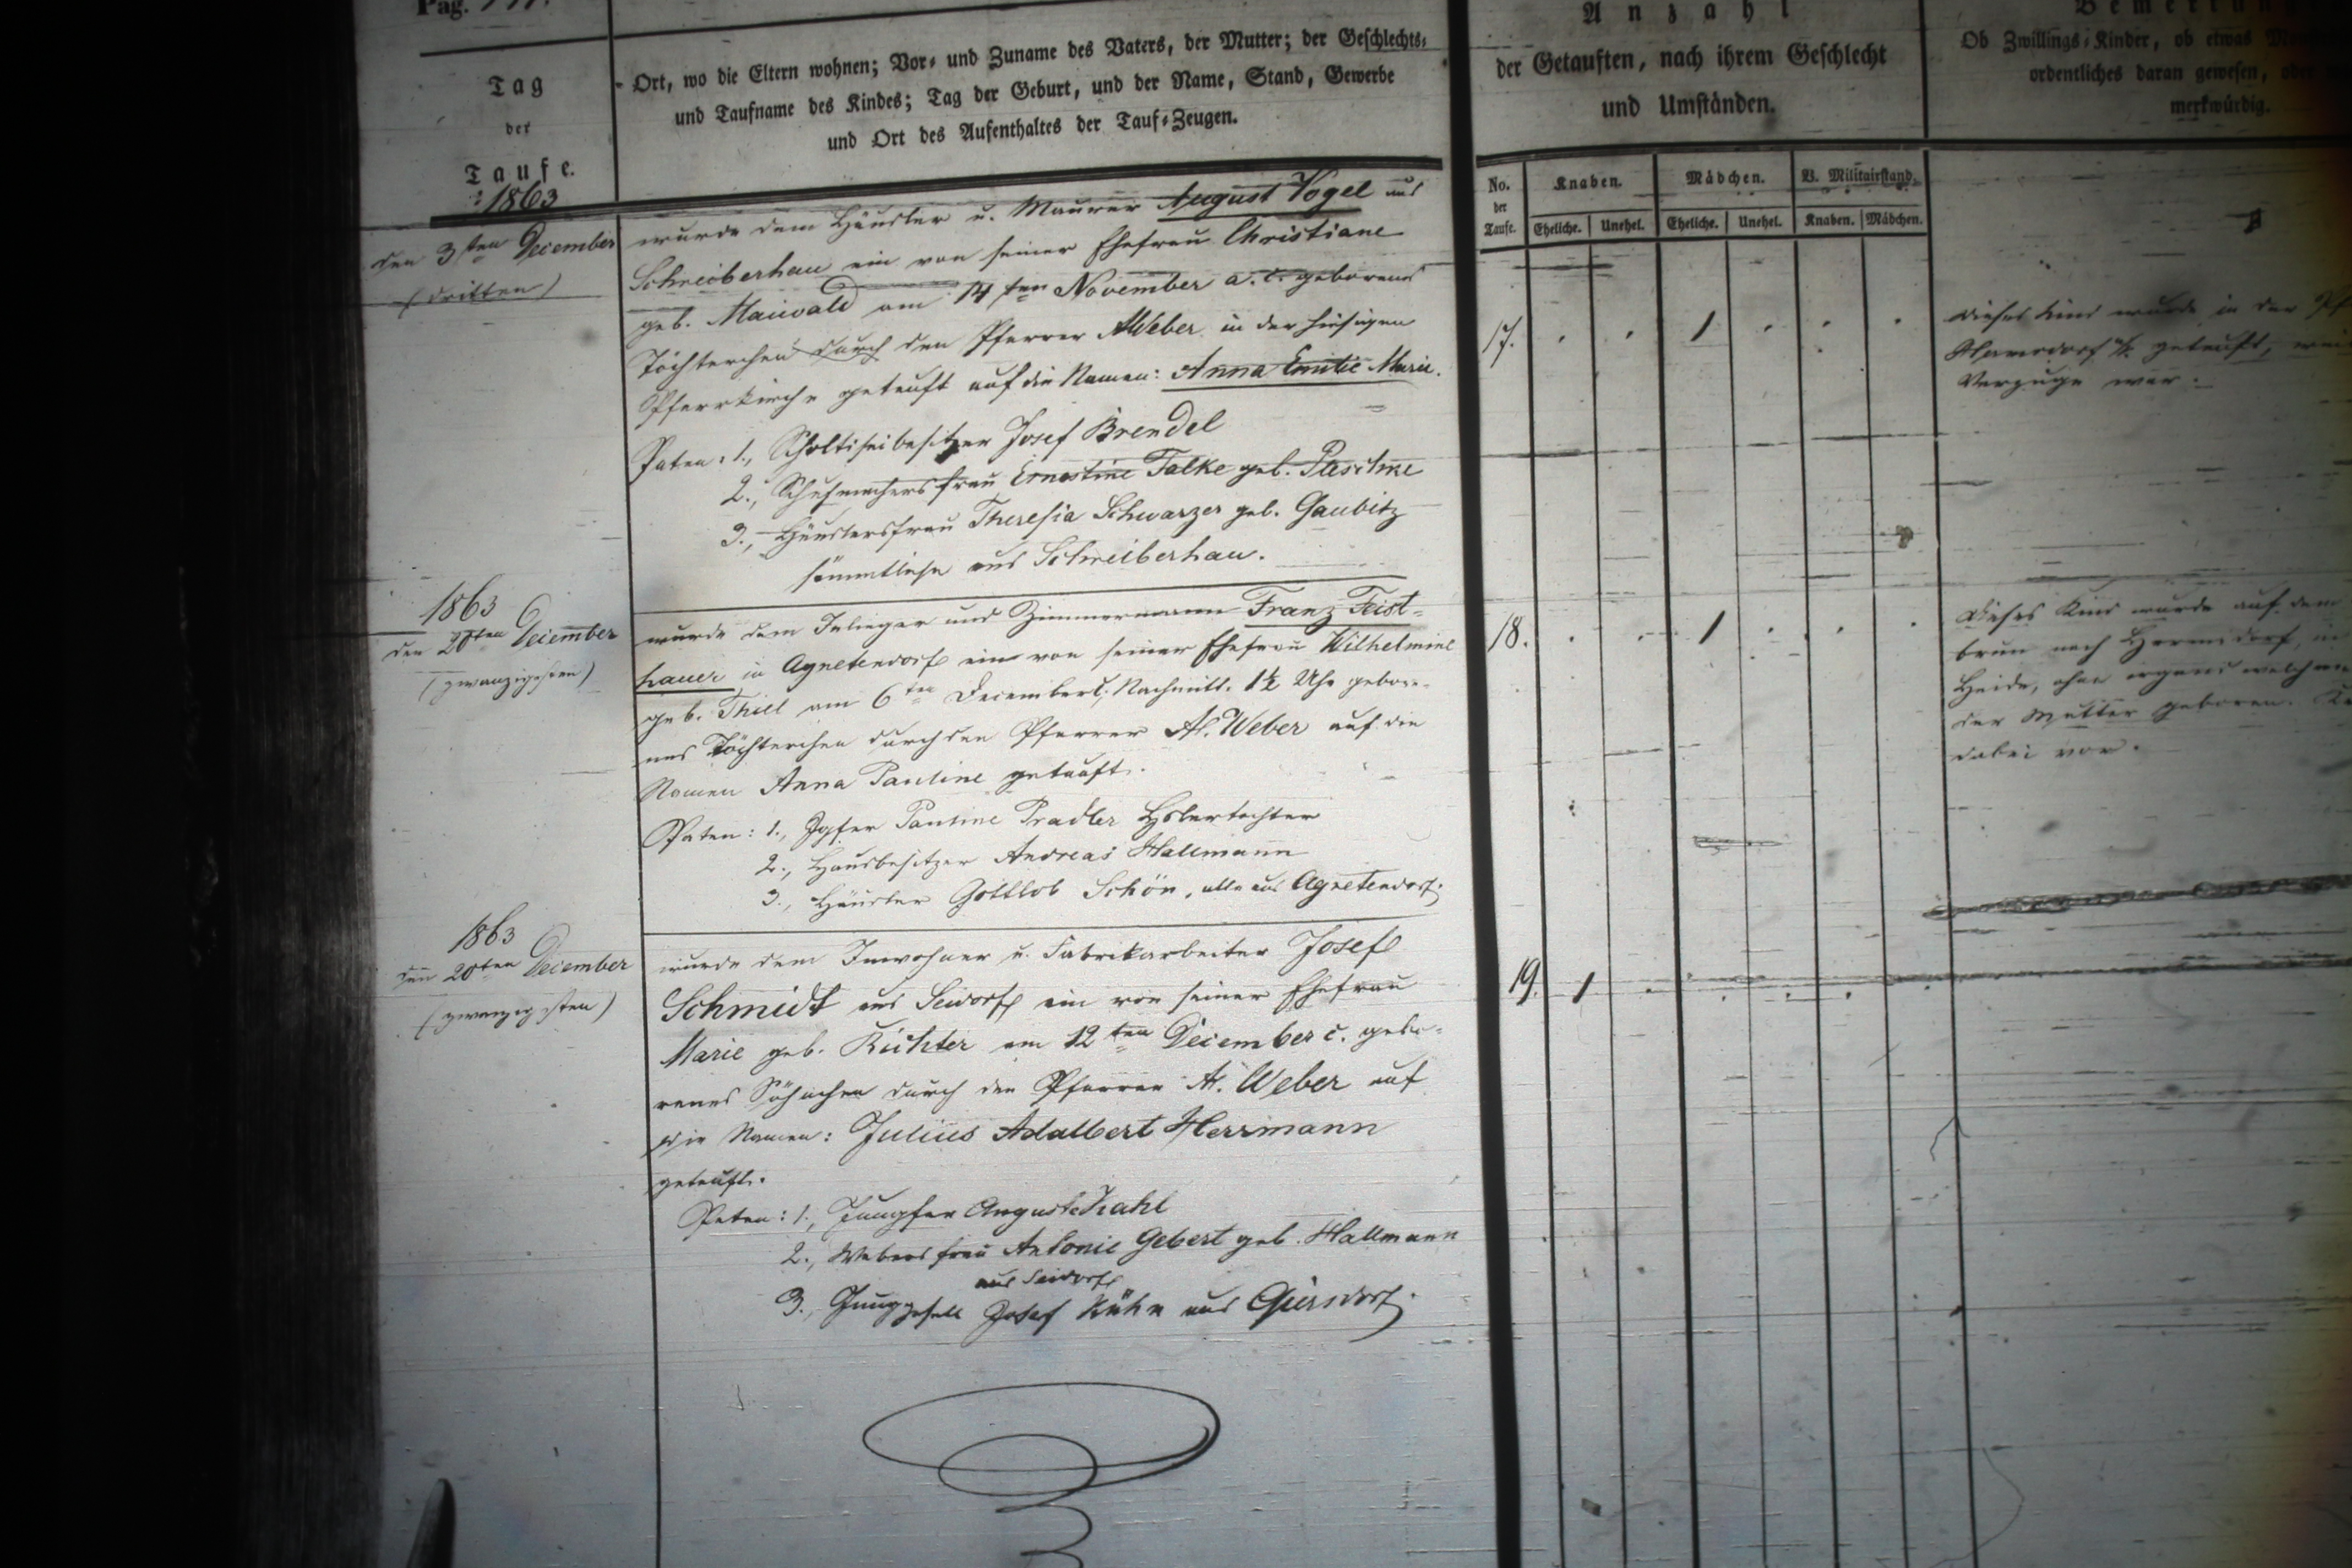 Pag.
Tag
der
Taufe.
1863
Ort, wo die Eltern wohnen; Vor- und Zuname des Vaters, der Mutter; der Geschlechts-
und Taufname des Kindes; Tag der Geburt, und der Name, Stand, Gewerbe
und Ort des Aufenthaltes der Tauf-Zeugen.
Anzahl
der Getauften, nach ihrem Geschlecht
und Umständen.
Ob Zwillings-Kinder, ob etwas
ordentliches daran gewesen,
merkwürdig.
No. der Taufe.
Knaben.
Mädchen.
V. Militairstand.
Eheliche. Unehel. Eheliche. Unehel. Knaben. Mädchen.
den 3ten December
(dritten)
wurde dem Häusler u. Maurer August Vogel aus
Schreiberhau ein von seiner Ehefrau Christiane
geb. Maiwald am 14ten November a. c. geborenes
Töchterchen durch den Pfarrer A. Weber in der hiesigen
Pfarrkirche getauft auf die Namen: Anna Emilie Marie.
Paten: 1., Scholtiseibesitzer Josef Brendel
2., Schuhmachersfrau Ernestine Falke geb.
3., Häuslersfrau Theresia Schwarzer geb. Gaubitz
sämmtliche aus Schreiberhau.
17. 1
dieses Kind wurde in der
Hermsdorf getauft,
Verzuge war.
1863
den 20ten December
(zwanzigsten)
wurde dem Inlieger und Zimmermann Franz Feist-
hauer in Agnetendorf ein von seiner Ehefrau Wilhelmine
geb. Thiel am 6ten December c. Nachmitt. 1½ Uhr gebore-
nes Töchterchen durch den Pfarrer A. Weber auf die
Namen Anna Pauline getauft.
Paten: 1., Jgfer Pauline Pradler
2., Hausbesitzer Andreas Hallmann
3., Häusler Gottlob Schön, alle aus Agnetendorf.
18. 1
Dieses Kind wurde auf dem
nach Hermsdorf, in
Heide, ohne irgend welch
der Mutter geboren.
dabei vor.
1863
den 20ten December
(zwanzigsten)
wurde dem Inwohner u. Fabrikarbeiter Josef
Schmidt aus Seidorf ein von seiner Ehefrau
Marie geb. Richter am 12ten December c. gebo-
renes Söhnchen durch den Pfarrer A. Weber auf
die Namen: Julius Adalbert Herrmann
getauft.
Paten: 1., Jungfer Auguste Kahl
2., Webersfrau Antonie Gebert geb. Hallmann
aus Seidorf
3., Junggesell Josef Kühn aus Giersdorf.
19. 1